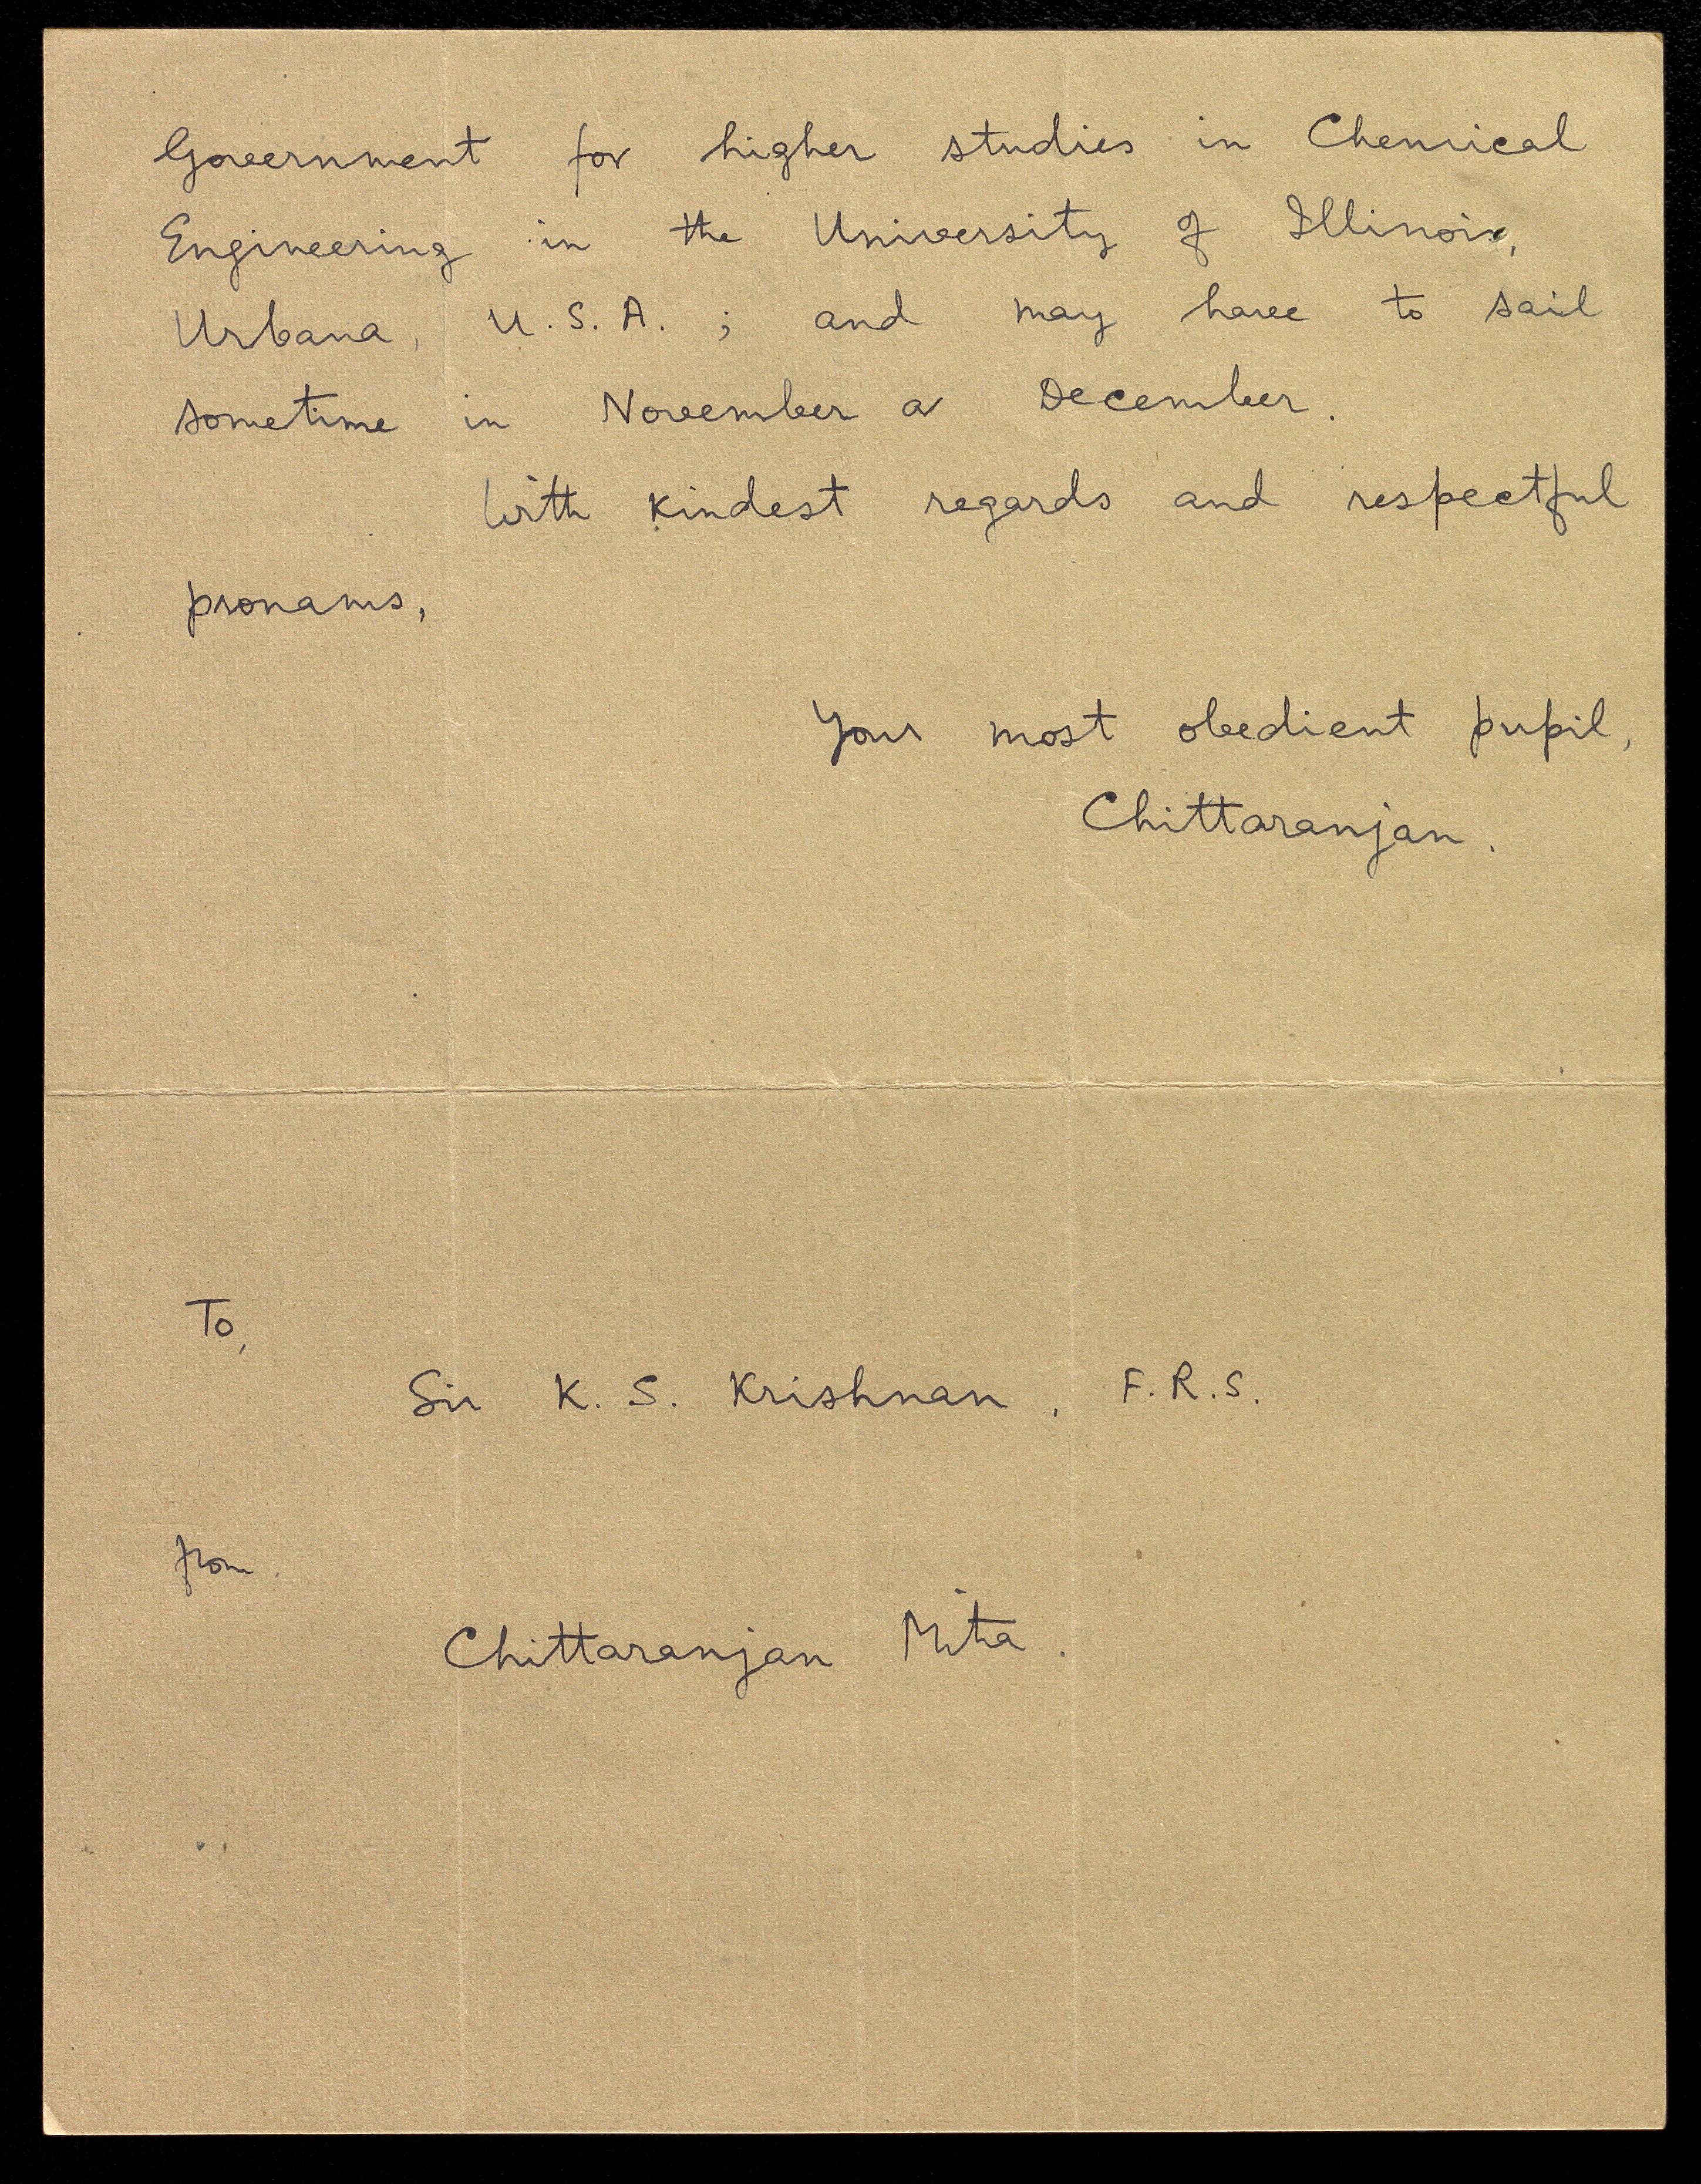 Government for higher studies in Chemical
Engineering in the University of Illinois,
Urbana, U.S.A. ; and may have to sail
sometime in November or December.
With kindest regards and respectful
pronams,
Your most obedient pupil,
Chittaranjan.
To,
Sir K. S. Krishnan, F.R.S.
from.
Chittaranjan Mitra.